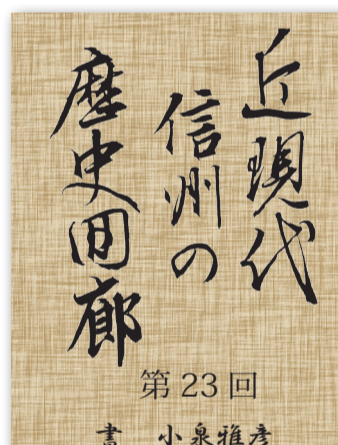 近現代
信州の
歴史回廊
第23回
書 小泉雅彦